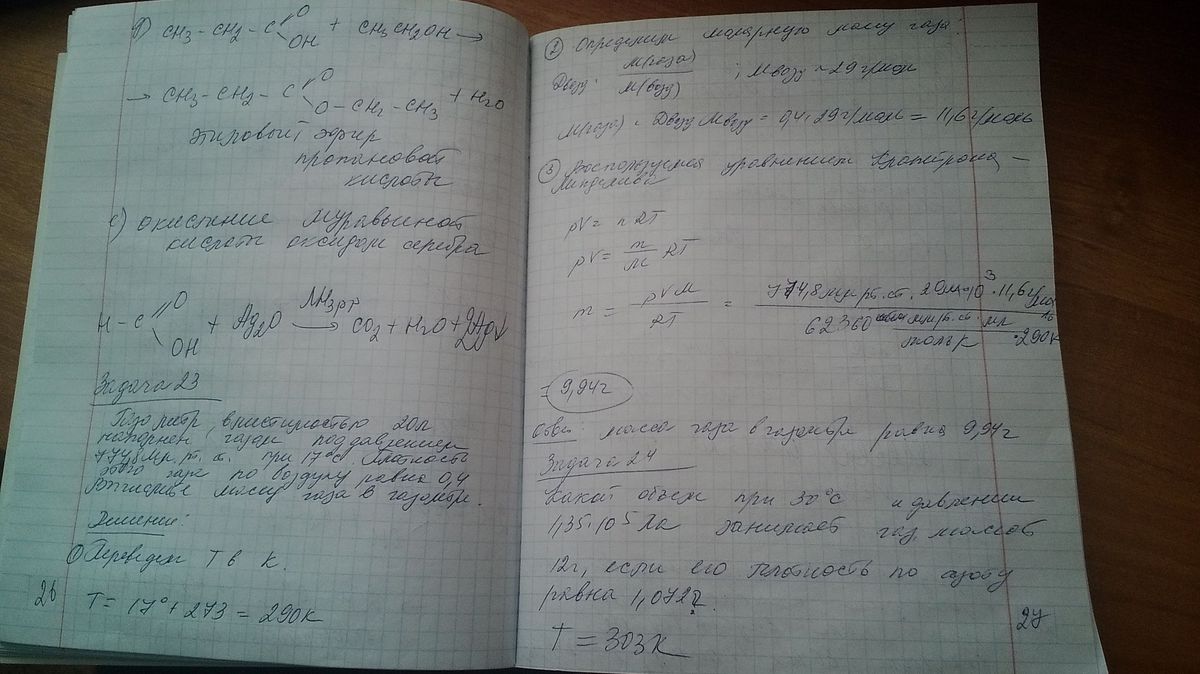 CH3-CH2-C
O
OH
+ CH3CH2OH →
→ CH3-CH2-C
O
O-CH2-CH3
+ H2O
этиловый эфир
пропановой
кислоты
с) окисление муравьиной
кислоты оксидом серебра
H-C
O
OH
+ Ag2O
NH3 р-р
→ CO2 + H2O + 2Ag↓
Задача 23
вместимостью 20л
наполнен газом под давлением
774,8 мм. рт. ст. при 17°С. Плотность
этого газа по воздуху равна 0,4
массу газа в газометре.
Решение:
① Переведем T в К.
T = 17° + 273 = 290К
26
② Определим молярную массу газа:
Dвозд.
M(газа)
M(возд)
; Mвозд = 29 г/моль
M(газа) = Dвозд Mвозд = 0,4 · 29 г/моль = 11,6 г/моль
③ Воспользуемся уравнением Клапейрона -
Менделеева
pV = nRT
pV = m/M RT
m = pVM/RT =
774,8 мм. рт. ст. 20 · 10³ · 11,6 г/моль
62360 мм рт. ст. мл
моль К
· 290К
= 9,94г
Ответ: масса газа в газометре равна 9,94г
Задача 24
Какой объем при 30°С и давлении
1,35·10⁵ Па занимает газ массой
12г, если его плотность по азоту
равна 1,072?
T = 303К
27